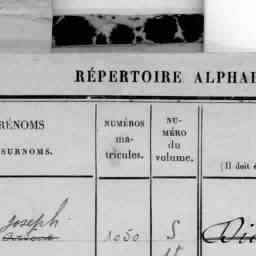 RÉPERTOIRE ALPHAB
RÉNOMS
SURNOMS.
NUMÉROS
ma-
tricules.
NU-
MÉRO
du
volume.
(Il doit é
Joseph
1050
5
Di